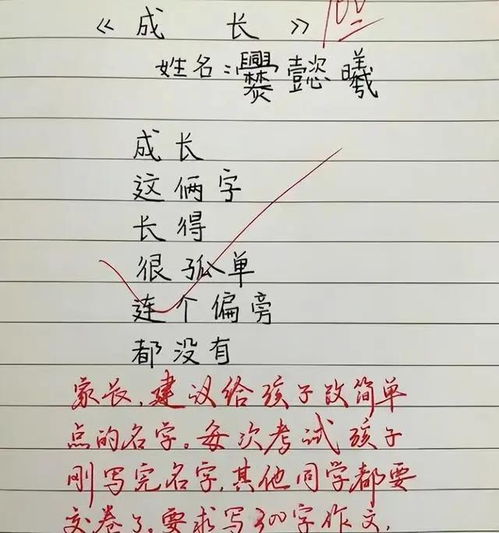 《成 长》 100
姓名: 懿曦
成长
这俩字
长得
很孤单
连个偏旁
都没有
家长,建议给孩子改简单
点的名字。每次考试孩子
刚写完名字,其他同学都要
交卷了。要求写300字作文,